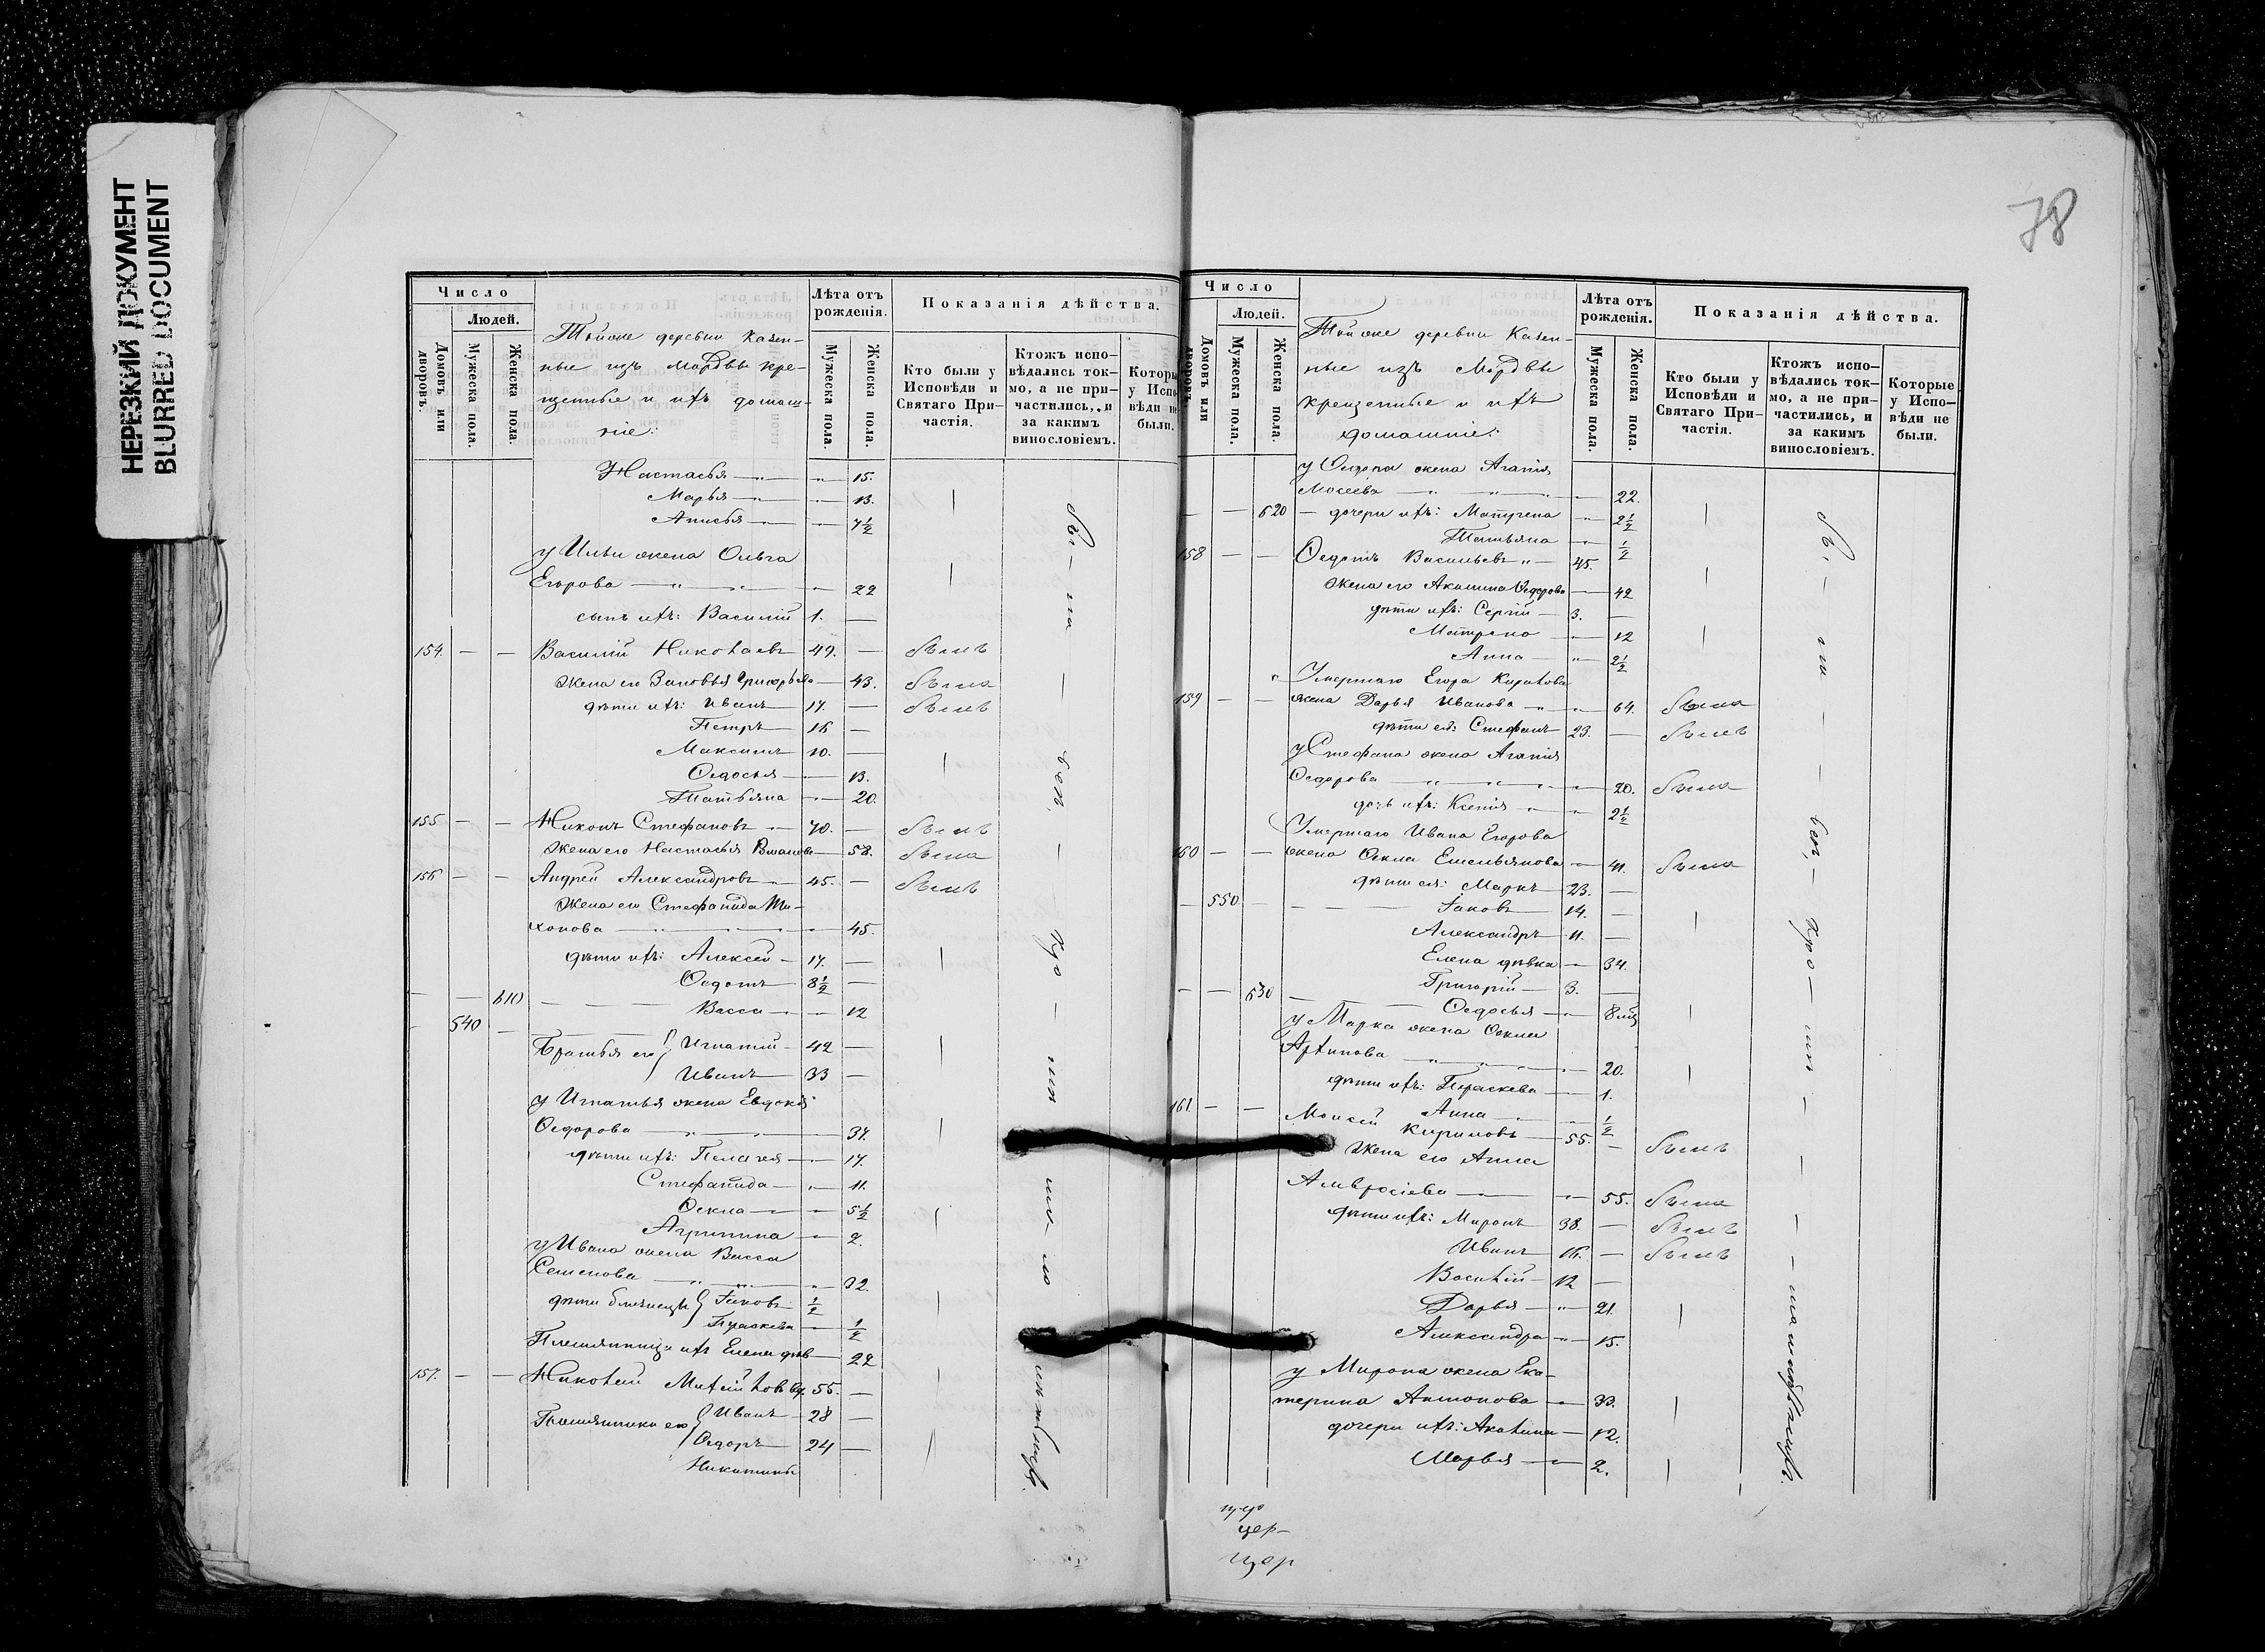 НЕРЕЗКИЙ ДОКУМЕНТ
BLURRED DOCUMENT
78
Число
Людей.
Домовъ или дворовъ.
Мужеска пола.
Женска пола.
Тойже деревни Казен-
ные изъ Мордвы кре-
щенные и ихъ домаш-
ніе:
Лѣта отъ рожденія.
Мужеска пола.
Женска пола.
Показанія дѣйства.
Кто были у Исповѣди и Святаго При-частія.
Ктожъ испо-вѣдались ток-мо, а не при-частились, и за какимъ винословіемъ.
Которые у Испо-вѣди не были.
Настасья — 15.
Марья — 13.
Анисья — 7½
у Ильи жена Ольга
Егорова — 22
сынъ ихъ: Василій 1. —
154. — — Василій Николаевъ 49. — былъ
жена его Зиновья Григорьева — 43. была
дѣти ихъ: Иванъ 17. — былъ
Петръ 16 —
Максимъ 10. —
Ѳедосья — 13.
Татьяна — 20.
155 — — Никонъ Стефановъ 70. — былъ
жена его Настасья — 58. была
156 — — Андрей Александровъ 45. — былъ
жена его Стефанида Ти-
хонова — 45.
дѣти ихъ: Алексей 17. —
Ѳедотъ 8½ —
— — 610 Васса — 12
— 540 —
Братья его Игнатій 42 —
Иванъ 33 —
у Игнатья жена Евдокія
Ѳедорова — 37.
дѣти ихъ: Пелагея — 17.
Стефанида — 11.
Ѳекла — 5½
Агрипина — 2.
у Ивана жена Васса
Семенова — 32.
дѣти близнецы Іаковъ ½
Параскева — ½
Племянница ихъ Елена дѣв — 22
157. — — Николай 55. —
Племянники его Иванъ 28 —
Ѳедоръ 24 —
Никитины
Число
Людей.
Домовъ или дворовъ.
Мужеска пола.
Женска пола.
Тойже деревни Казен-
ные изъ Мордвы
крещенные и ихъ
домашніе:
Лѣта отъ рожденія.
Мужеска пола.
Женска пола.
Показанія дѣйства.
Кто были у Исповѣди и Святаго При-частія.
Ктожъ испо-вѣдались ток-мо, а не при-частились, и за какимъ винословіемъ.
Которые у Испо-вѣди не были.
у Ѳедора жена Агапія
Мосеева — 22.
— — 620 — дочери ихъ: Матрена — 2½
Татьяна — ½
158 — — Ѳедотъ Васильевъ 45.
жена его Акилина Ѳедорова — 42
дѣти ихъ: Сергій 3. —
Матрена — 12
Анна — 2½
Умершаго Егора Кирилова
159 — — жена Дарья Иванова — 64. была
дѣти ея: Стефанъ 23. — былъ
у Стефана жена Агапія
Ѳедорова — 20. была
дочь ихъ: Ксенія — 2½
Умершаго Ивана Егорова
160 — — жена Ѳекла Емельянова — 41. была
дѣти ея: Маркъ 23. —
— 550 — Іаковъ 14. —
Александръ 11. —
Елена дѣвка — 34.
Григорій 3. —
— — 630 Ѳедосья — 8
у Марка жена Ѳекла
Архипова — 20.
дѣти ихъ: Параскева — 1.
Анна — ½
161. — — Моисей Кириловъ 55. — былъ
жена его Анна
Амвросіева — 55. была
дѣти ихъ: Миронъ 38. — былъ
Иванъ 16. — былъ
Василій 12 —
Дарья — 21.
Александра — 15.
у Мирона жена Ека-
терина Антонова — 33.
дочери ихъ: Акилина — 12.
Марья — 2.
цер-